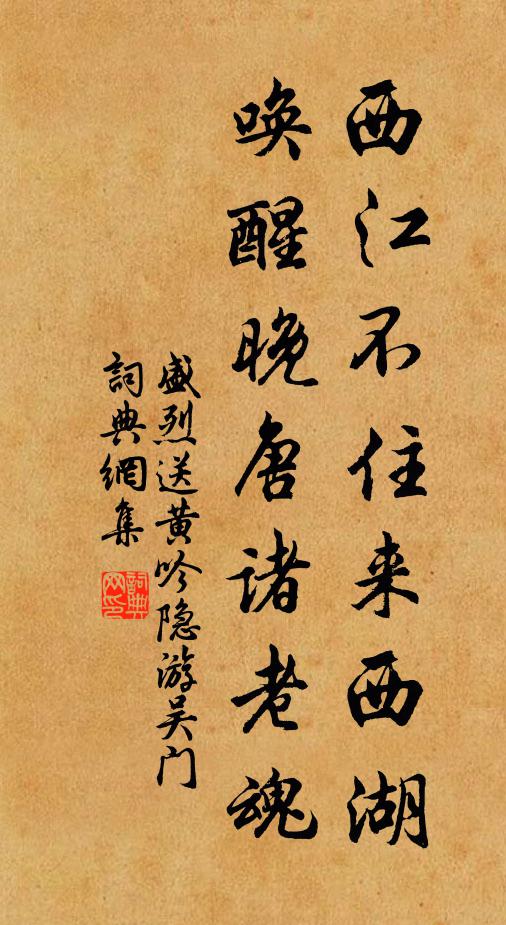 西江不住来西湖
唤醒晚唐诸老魂
盛烈送黄吟隐游吴门
詞典網集
詞典網印